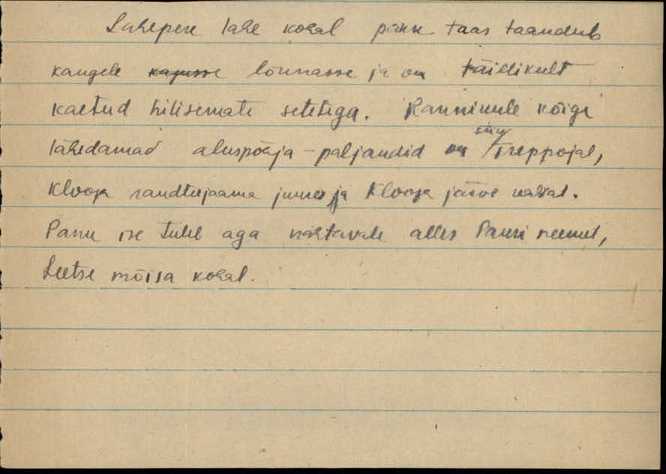 Lahepere lahe kohal pank taas taandub
kaugele kagusse lõunasse ja on täielikult
kaetud hilisemate setetega. Rannikule kõige
lähedamad aluspõhja-paljandid on siin Treppojal,
Klooga raudteejaama juures ja Klooga järve vahel.
Pank ise tuleb aga nähtavale alles Pakri neemel,
Leetse mõisa kohal.